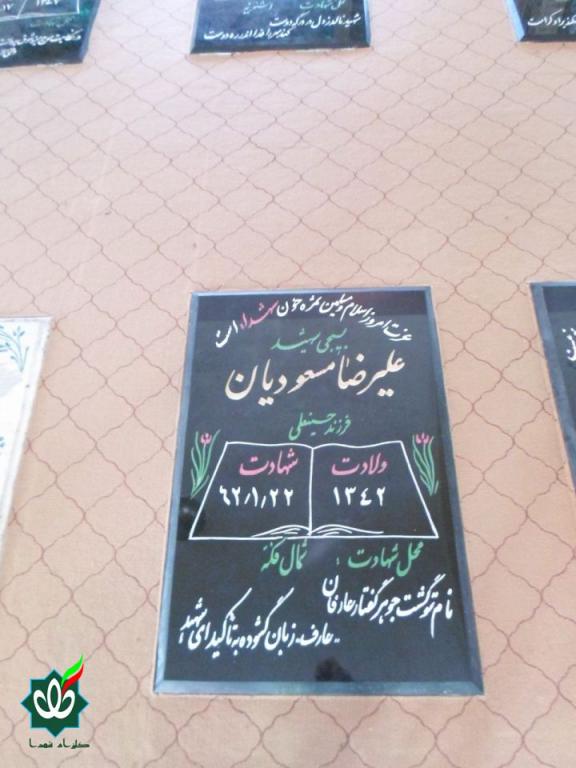 شهادت
شهید نالد
عزت امروز اسلام و مسلمین ثمره خون شهداء است
بسیجی شهید
علیرضا مسعودیان
فرزند حسینعلی
ولادت شهادت
۱۳۴۲ ۶۲/۱/۲۲
محل شهادت : شمال فکه
نام تو گشت جوهر گفتار عارفان
عارف زبان گشوده به تاکید ای شهید